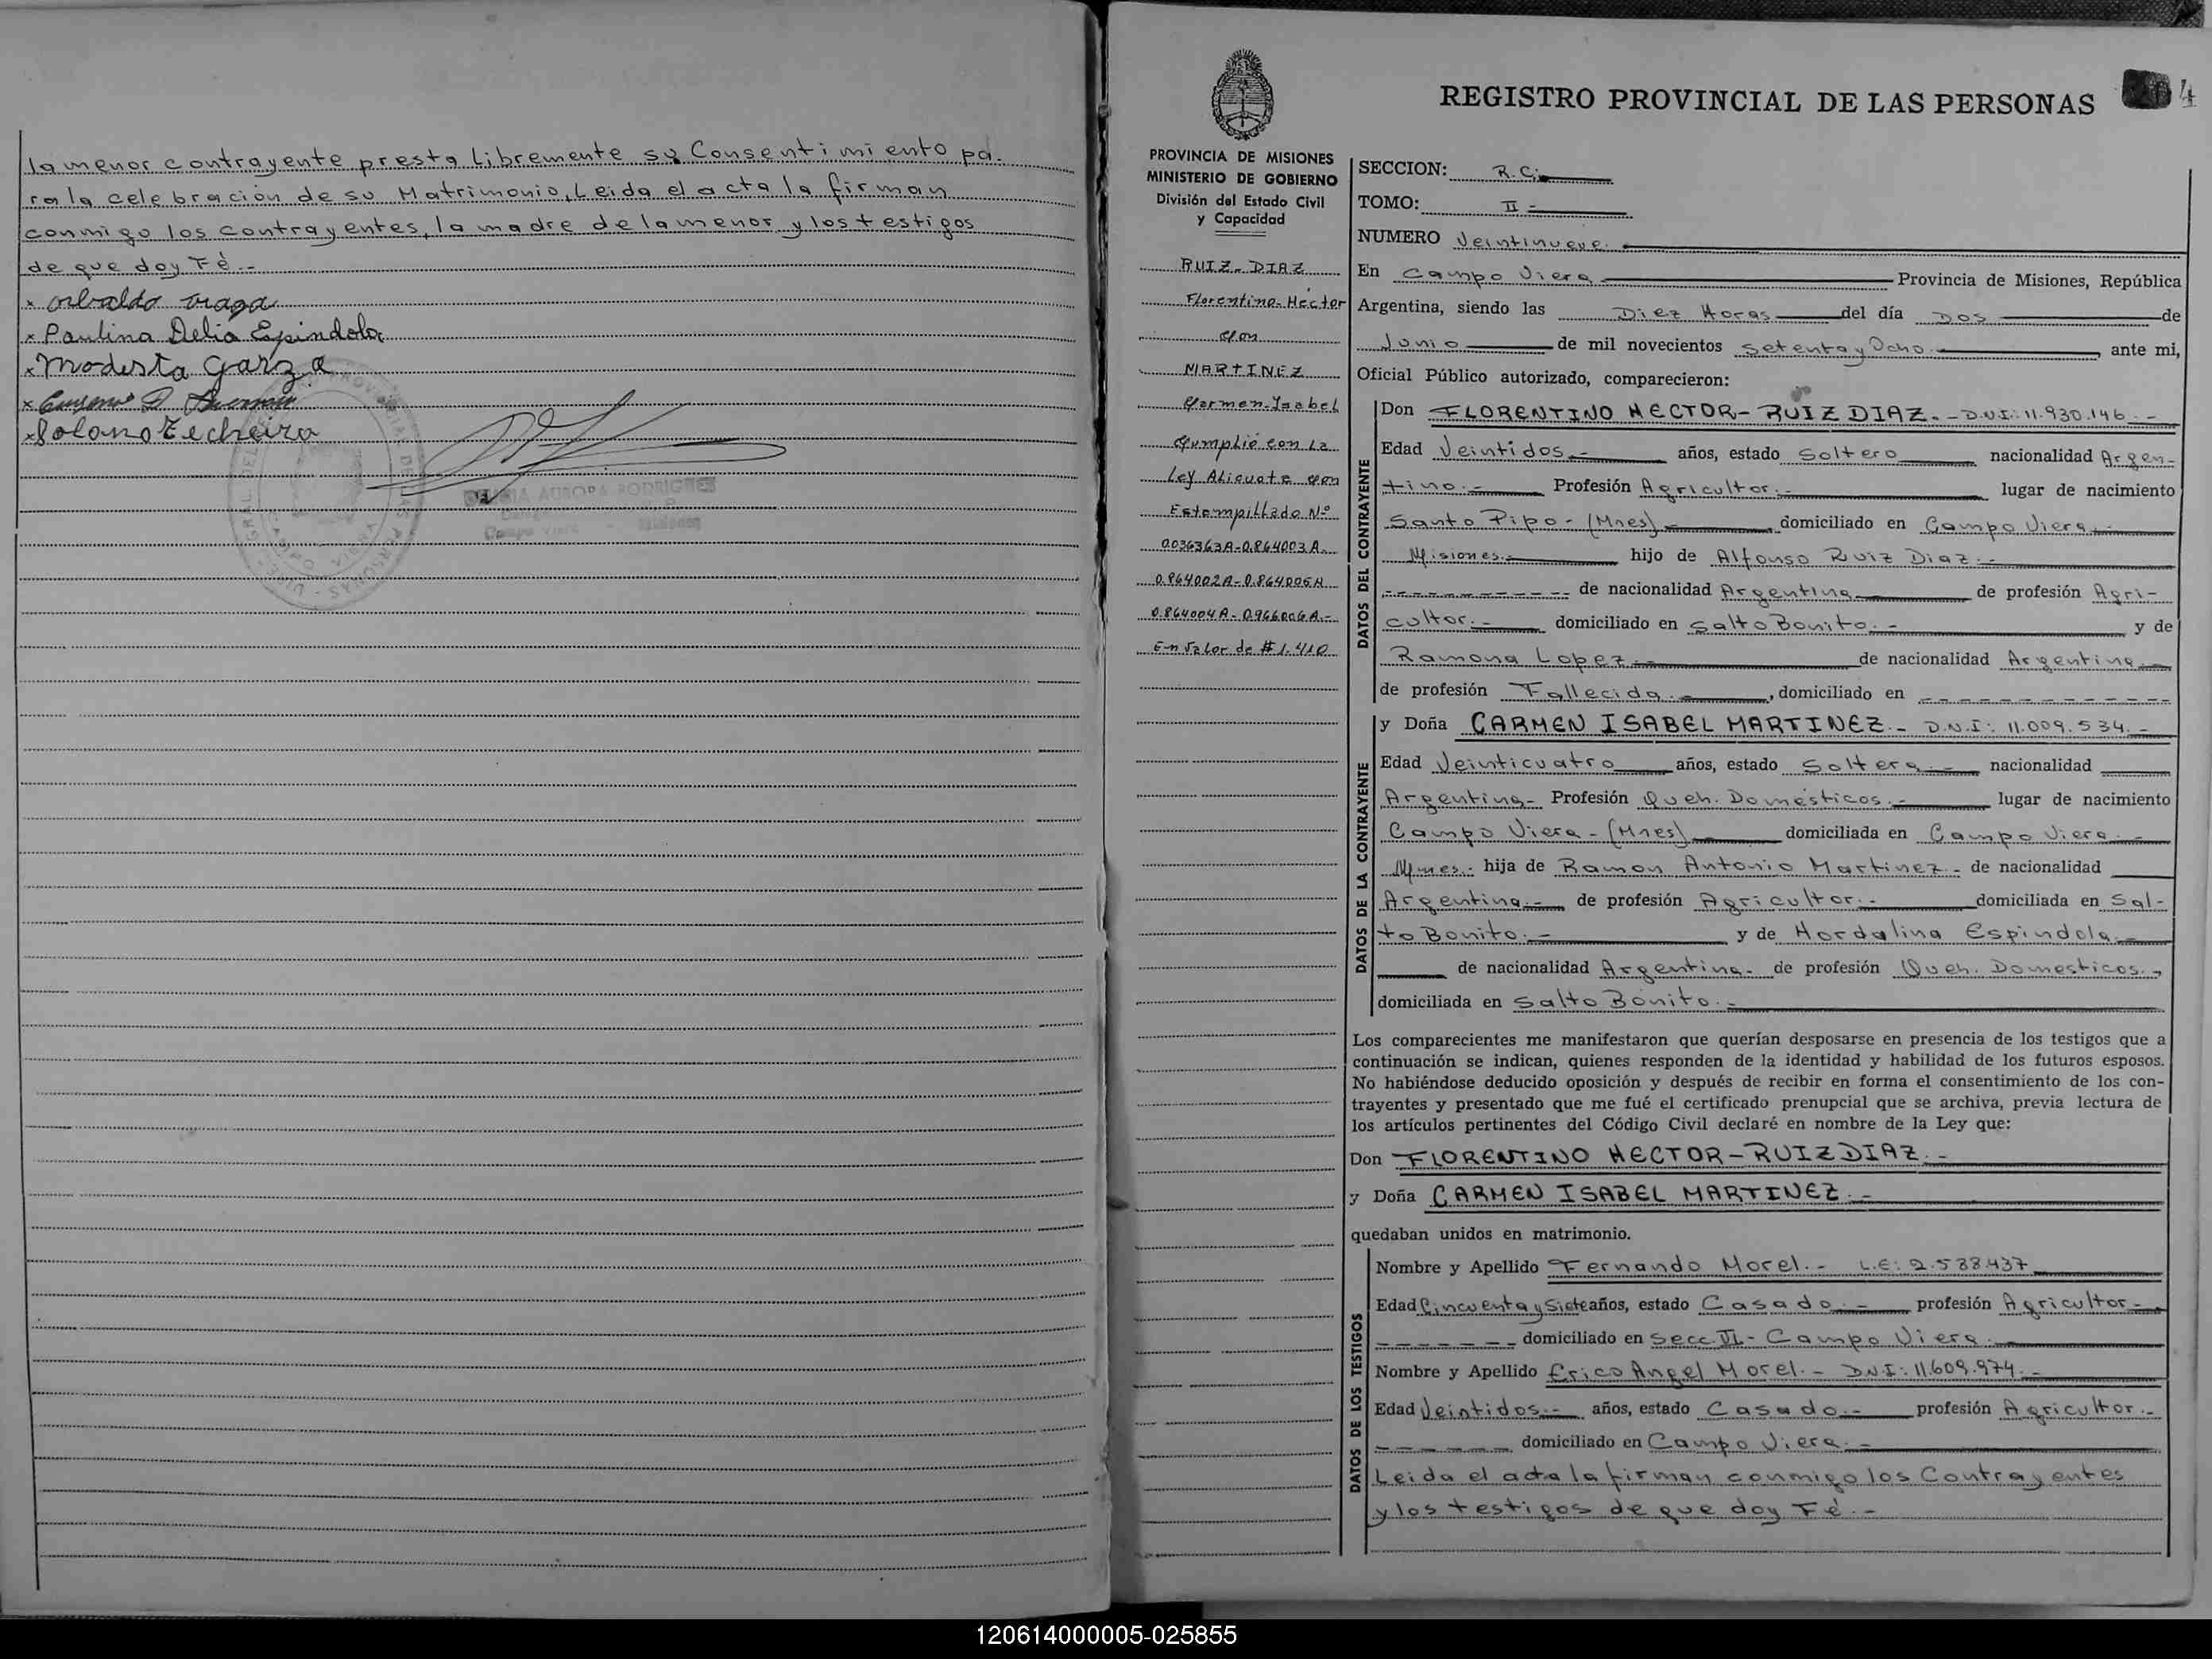 la menor contrayente presta libremente su Consentimiento pa-
ra la celebración de su Matrimonio, Leida el acta la firman
conmigo los contrayentes, la madre de la menor y los testigos
de que doy Fé.-
x Osbaldo
x Paulina Delia Espindola
x Modesta Garza
x Solano Techeira
AURORA RODRIGUES
Campo Viera
REGISTRO PROVINCIAL DE LAS PERSONAS
4
PROVINCIA DE MISIONES
MINISTERIO DE GOBIERNO
División del Estado Civil
y Capacidad
RUIZ-DIAZ
Florentino-Héctor
Con
MARTINEZ
Carmen-Isabel
Cumplió con La
Ley Alicuota con
Estampillado Nº
0036363A-0.864003A.-
0.964002A-0.864005A
0.864004A-0.966006A.-
En Valor de $1.410
SECCION: R.C.-
TOMO: II-
NUMERO Veintinueve.
En Campo Viera Provincia de Misiones, República
Argentina, siendo las Diez Horas del día Dos de
Junio de mil novecientos setenta y Ocho.- ante mi,
Oficial Público autorizado, comparecieron:
DATOS DEL CONTRAYENTE
Don FLORENTINO HECTOR-RUIZ DIAZ.-D.N.I: 11.930.146.-
Edad Veintidos.- años, estado Soltero nacionalidad Argen-
tino.- Profesión Agricultor.- lugar de nacimiento
Santo Pipo-(Mnes)- domiciliado en Campo Viera.-
Misiones.- hijo de Alfonso Ruiz Diaz.-
de nacionalidad Argentina de profesión Agri-
cultor.- domiciliado en Salto Bonito.- y de
Ramona Lopez.- de nacionalidad Argentina.-
de profesión Fallecida.-, domiciliado en ----------
DATOS DE LA CONTRAYENTE
y Doña CARMEN ISABEL MARTINEZ.- D.N.I: 11.009.534.-
Edad Veinticuatro años, estado Soltera.- nacionalidad
Argentina- Profesión Queh. Domésticos.- lugar de nacimiento
Campo Viera-(Mnes) domiciliada en Campo Viera.-
Mnes.- hija de Ramon Antonio Martinez.- de nacionalidad
Argentina.- de profesión Agricultor.- domiciliada en Sal-
to Bonito.- y de Hordalina Espindola.-
de nacionalidad Argentina- de profesión Queh. Domesticos.-
domiciliada en Salto Bonito.-
Los comparecientes me manifestaron que querían desposarse en presencia de los testigos que a
continuación se indican, quienes responden de la identidad y habilidad de los futuros esposos.
No habiéndose deducido oposición y después de recibir en forma el consentimiento de los con-
trayentes y presentado que me fué el certificado prenupcial que se archiva, previa lectura de
los artículos pertinentes del Código Civil declaré en nombre de la Ley que:
Don FLORENTINO HECTOR-RUIZ DIAZ.-
y Doña CARMEN ISABEL MARTINEZ.-
quedaban unidos en matrimonio.
DATOS DE LOS TESTIGOS
Nombre y Apellido Fernando Morel.- L.E: 2.588.437
Edad Cincuenta y Siete años, estado Casado.- profesión Agricultor-
------- domiciliado en Secc. VI- Campo Viera.-
Nombre y Apellido Erico Angel Morel.- D.N.I: 11.609.974.-
Edad Veintidos.- años, estado Casado.- profesión Agricultor.-
------ domiciliado en Campo Viera.-
Leida el acta la firman conmigo los Contrayentes
y los testigos de que doy Fé.-
120614000005-025855